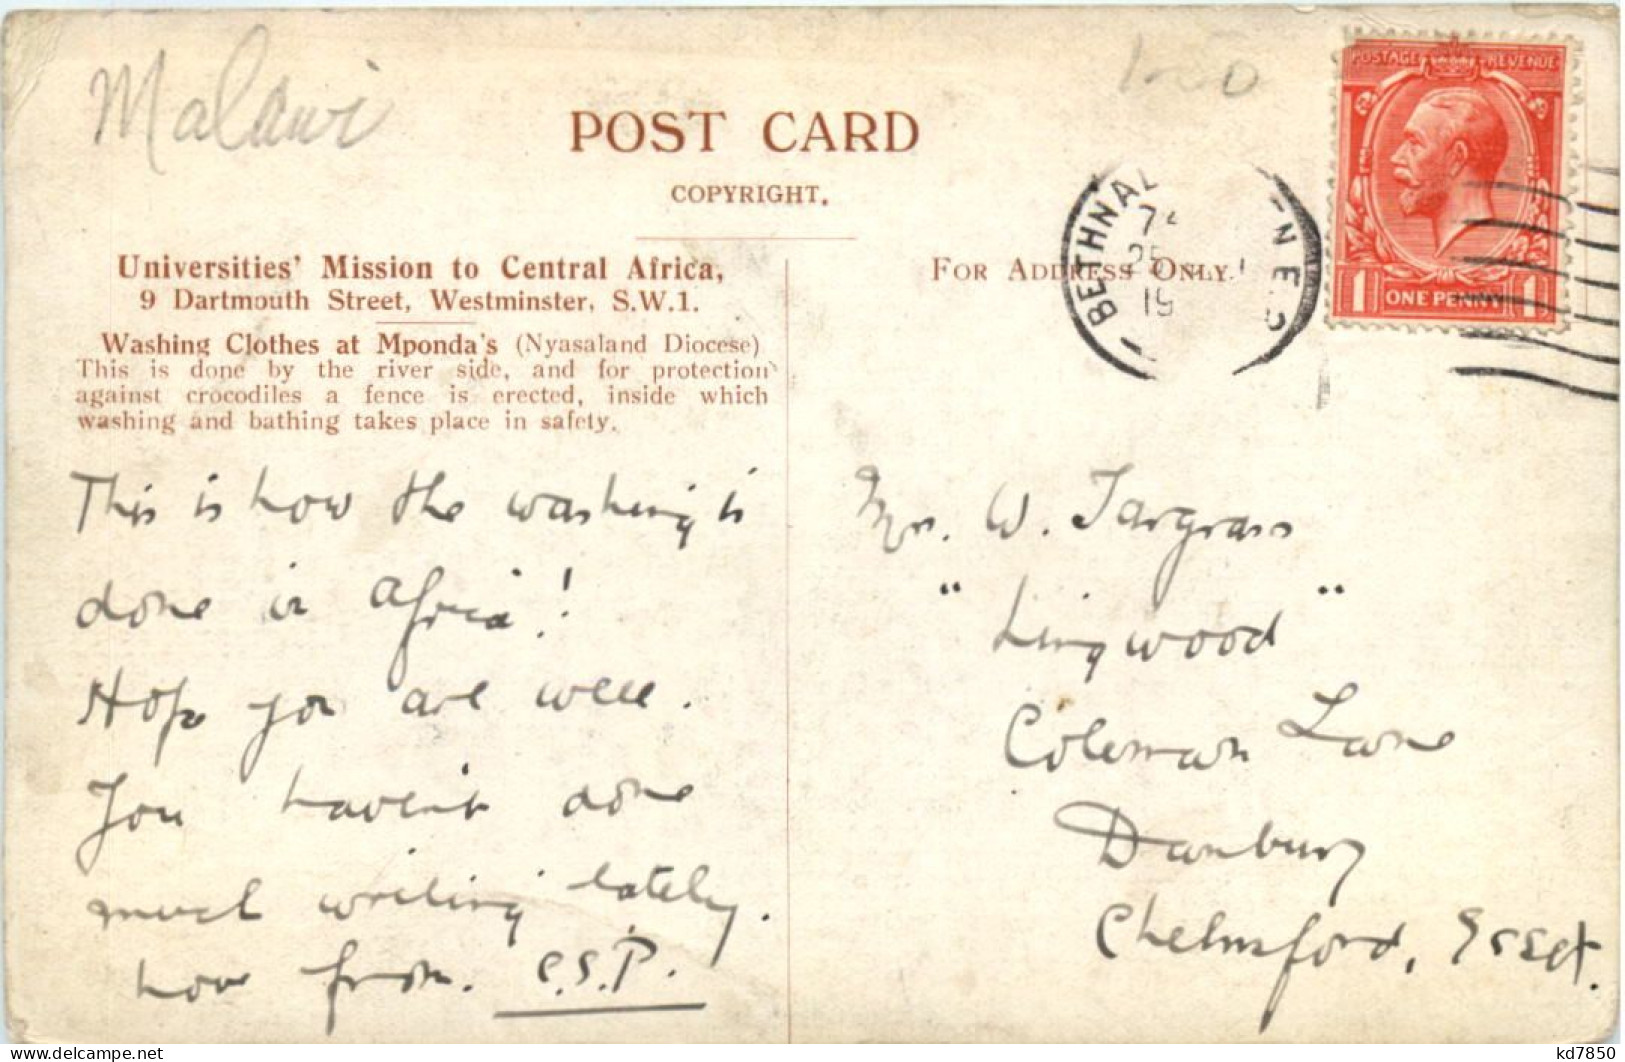 Malawi
POST CARD
COPYRIGHT.
POSTAGE REVENUE
1 ONE PENNY 1
BETHNAL
N E.2
25
19
Universities' Mission to Central Africa,
9 Dartmouth Street, Westminster, S.W.1.
Washing Clothes at Mponda's (Nyasaland Diocese)
This is done by the river side, and for protection
against crocodiles a fence is erected, inside which
washing and bathing takes place in safety.
FOR ADDRESS ONLY.
This is how the washing is
done in Africa!
Hope you are well.
You haven't done
much writing lately.
Love from. C.S.P.
W. Targrass
"Lingwood"
Coleman Lane
Danbury
Chelmsford, Essex.
kd7850